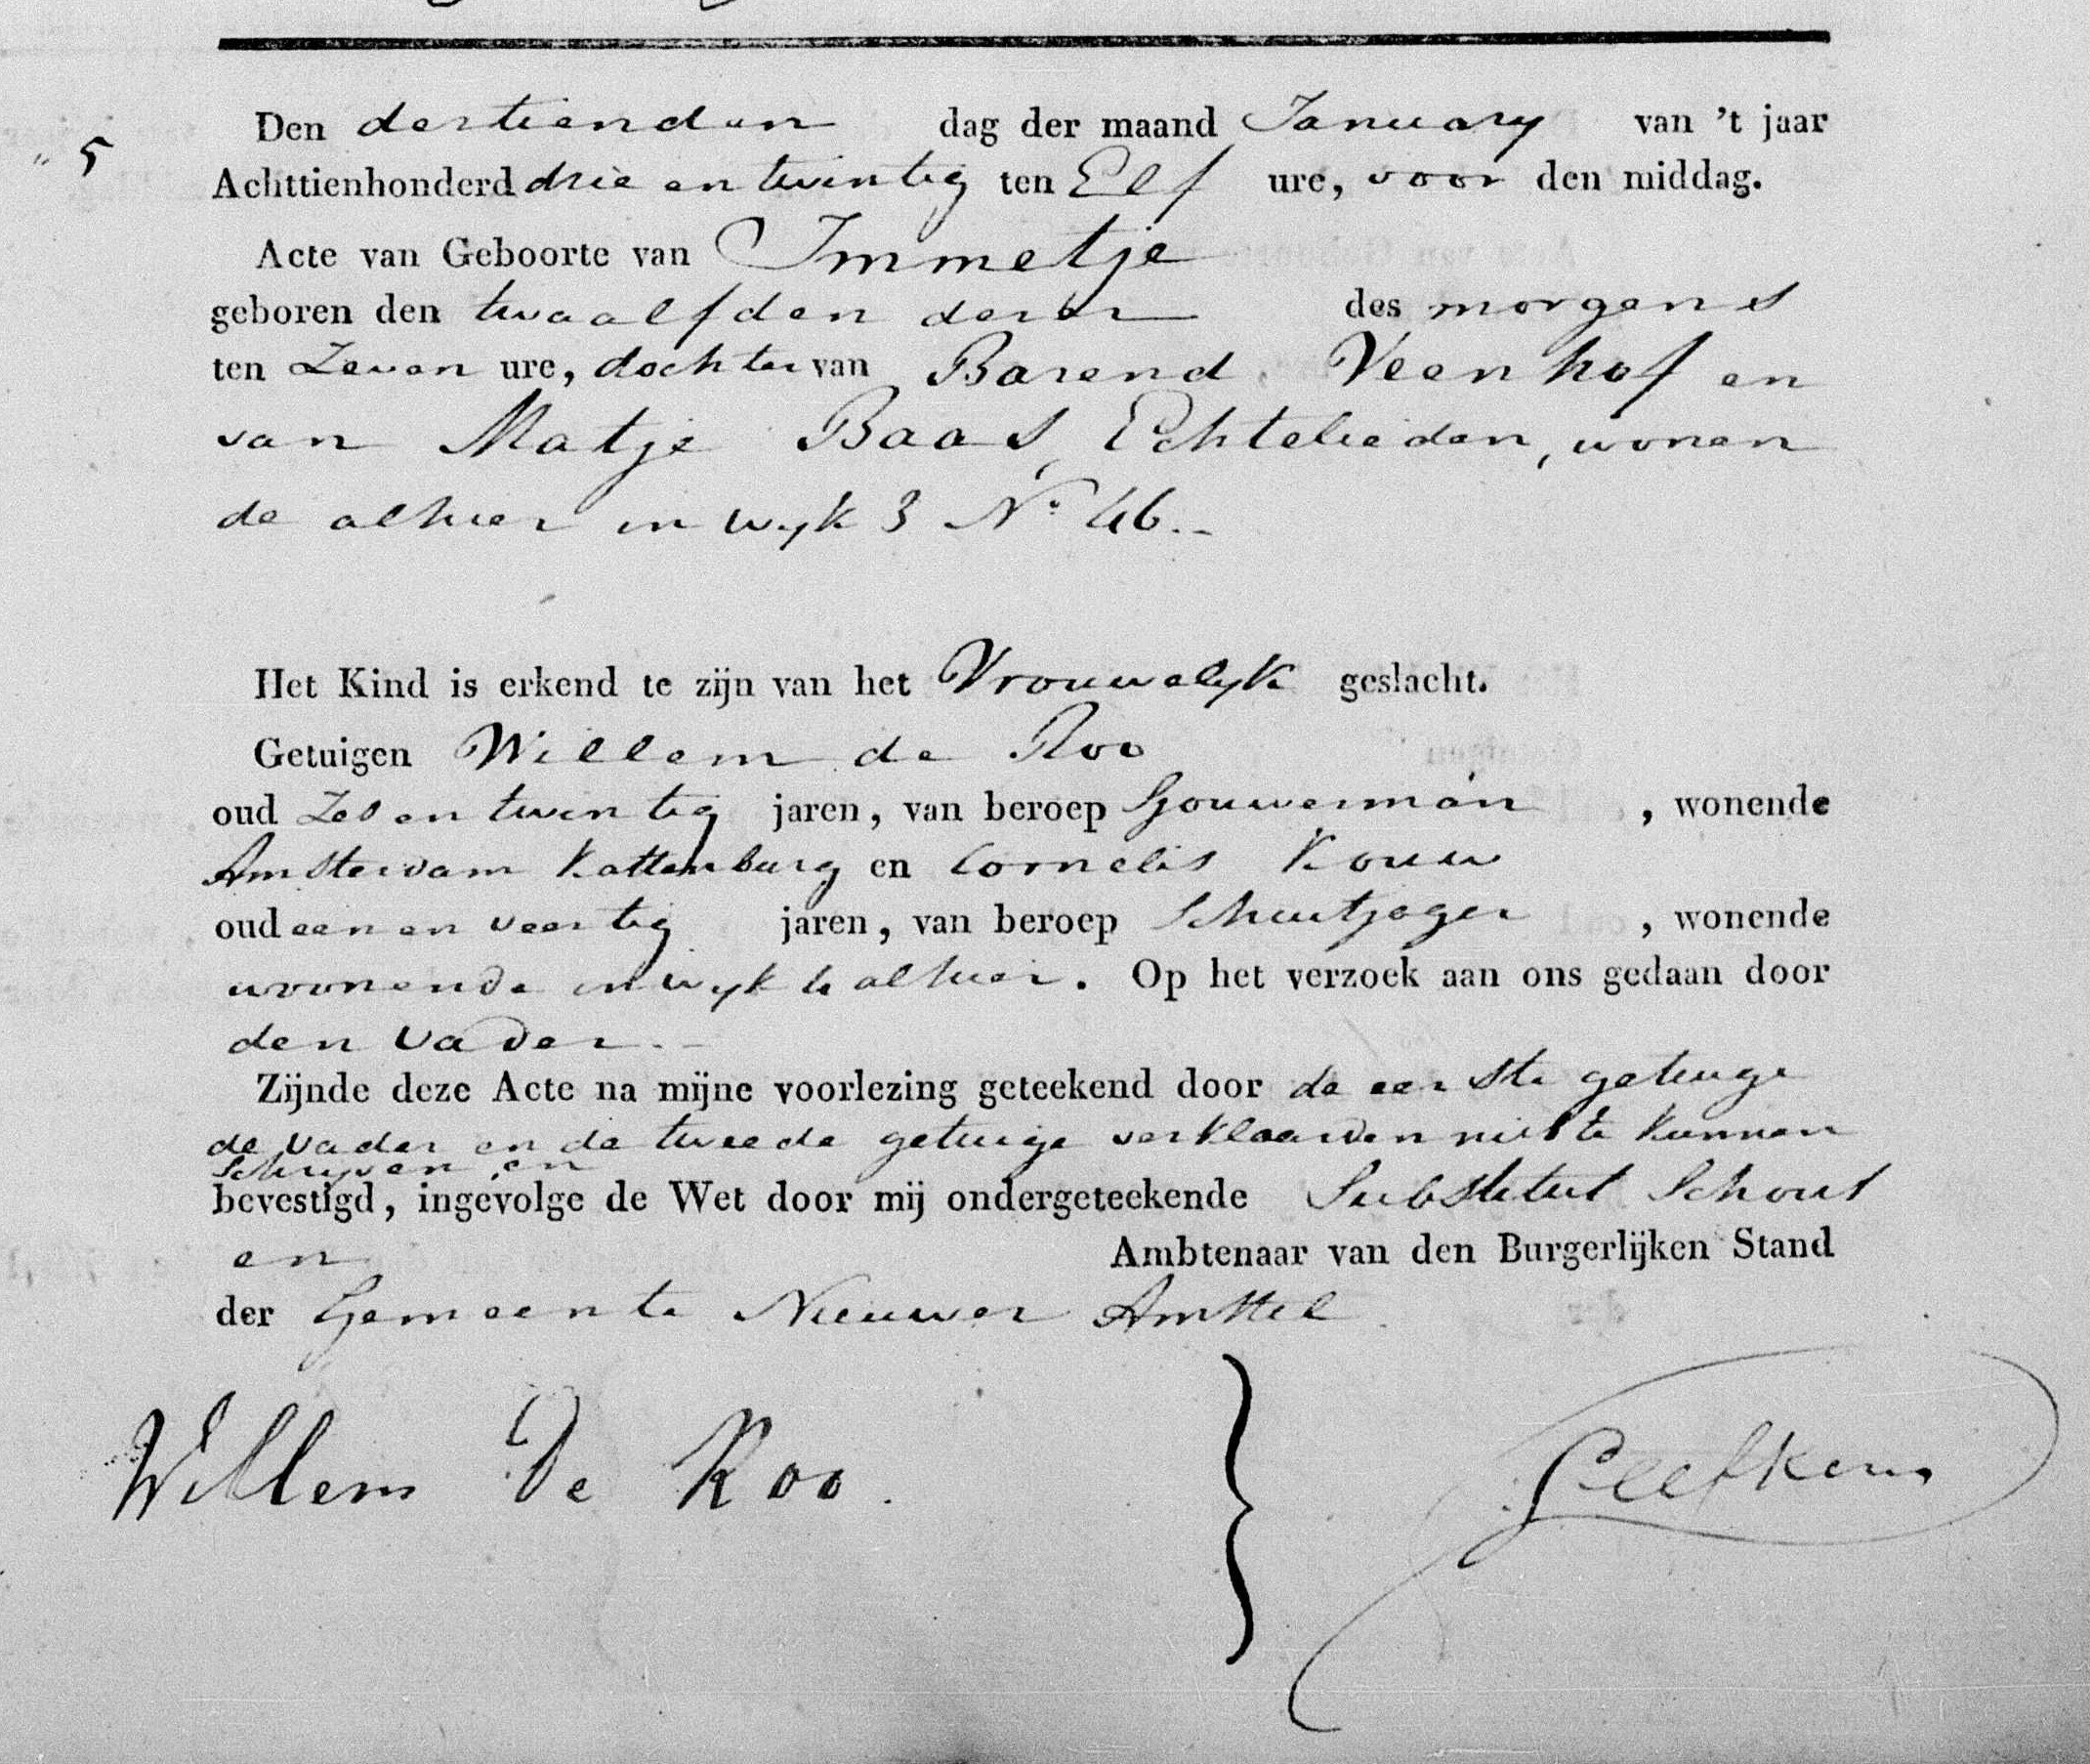 5
Den dertienden dag der maand January van 't jaar
Achttienhonderd drie en twintig ten Elf ure, voor den middag.
Acte van Geboorte van Immetje
geboren den twaalfden dezer des morgens
ten Zeven ure, dochter van Barend Veenhof en
van Matje Baas, Echtelieden, wonen
de alhier in wyk 3 No. 46.
Het Kind is erkend te zijn van het Vrouwelyk geslacht.
Getuigen Willem de Roo
oud Zes en twintig jaren, van beroep Sjouwerman, wonende
Amsterdam Kattenburg en Cornelis Kouw
oud een en veertig jaren, van beroep Schuitjager, wonende
woonende in wyk 4 alhier. Op het verzoek aan ons gedaan door
den Vader.
Zijnde deze Acte na mijne voorlezing geteekend door de eerste getuige
de Vader en de tweede getuige verklaarden niet te kunnen
schryven en
bevestigd, ingevolge de Wet door mij ondergeteekende Substituut Schout
en Ambtenaar van den Burgerlijken Stand
der Gemeente Nieuwer Amstel
Willem De Roo.